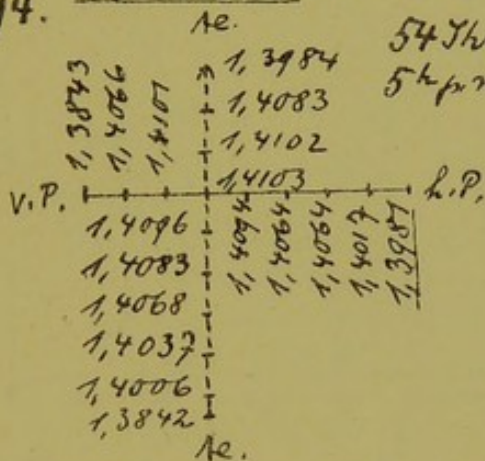 4.
Ae.
54
5h p.m.
1,3984
1,4083
1,4102
1,4103
1,3843
1,4069
1,4101
v.P.
h.P.
1,4094
1,4064
1,4064
1,4017
1,3981
1,4096
1,4083
1,4068
1,4037
1,4006
1,3842
Ae.